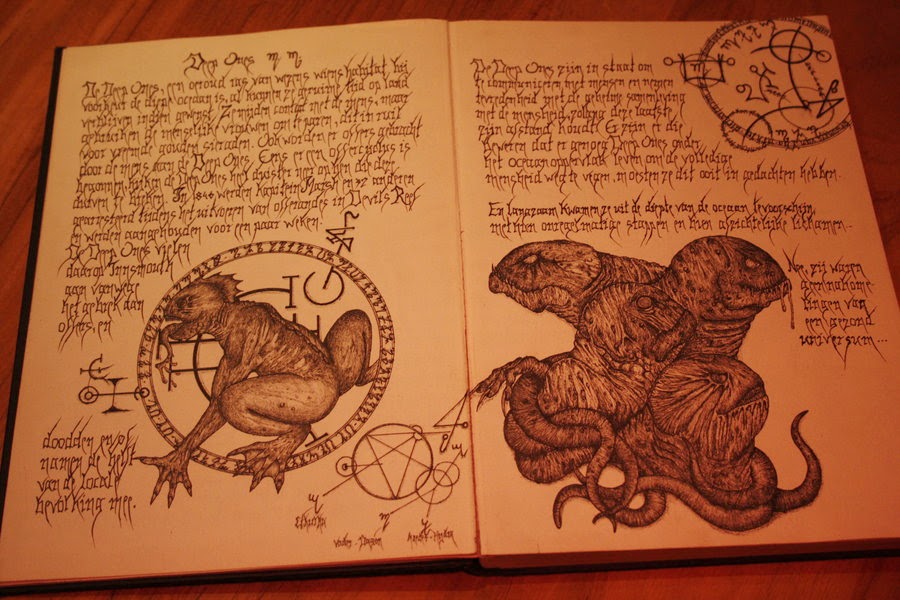 Deep Ones
De Deep Ones, een oeroud ras van wezens wiens habitat bij
voorkeur de diepe oceaan is, al kunnen ze geruime tijd op land
verblijven indien gewenst. Ze mijden contact met de mens, maar
gebruiken de menselijke vrouwen om te paren, dit in ruil
voor vreemde gouden sieraden. Ook worden er offers gebracht
door de mens aan de Deep Ones. Eens er een offercyclus is
begonnen, de Deep Ones het
te In 1840 werden kapitein Marsh en 32 anderen
gearresteerd tijdens het uitvoeren van offerandes in Devils Reef
en werden aangehouden voor een paar weken.
De Deep Ones vielen
daarop Innsmouth
aan vanwege
het gebrek aan
offers, en
doodden en/of
namen de helft
van de locale
bevolking mee.
De Deep Ones zijn in staat om
te communiceren met mensen en nemen
tevredenheid met de geheime samenleving
met de mensheid, zolang deze laatste
zijn afstand houdt. Er zijn er die
beweren dat er genoeg Deep Ones onder
het oceaanoppervlak leven om de volledige
mensheid weg te vegen, moesten ze dit ooit in gedachten hebben.
En langzaam kwamen ze uit de diepte van de oceaan tevoorschijn,
met hun onregelmatige stappen en hun afzichtelijke lichamen.
Nee, zij waren
geen nakome-
lingen van
een gezond
universum...